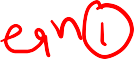 eqn ①